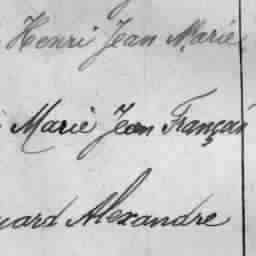 Henri Jean Marie
Marie Jean Françai
uard Alexandre